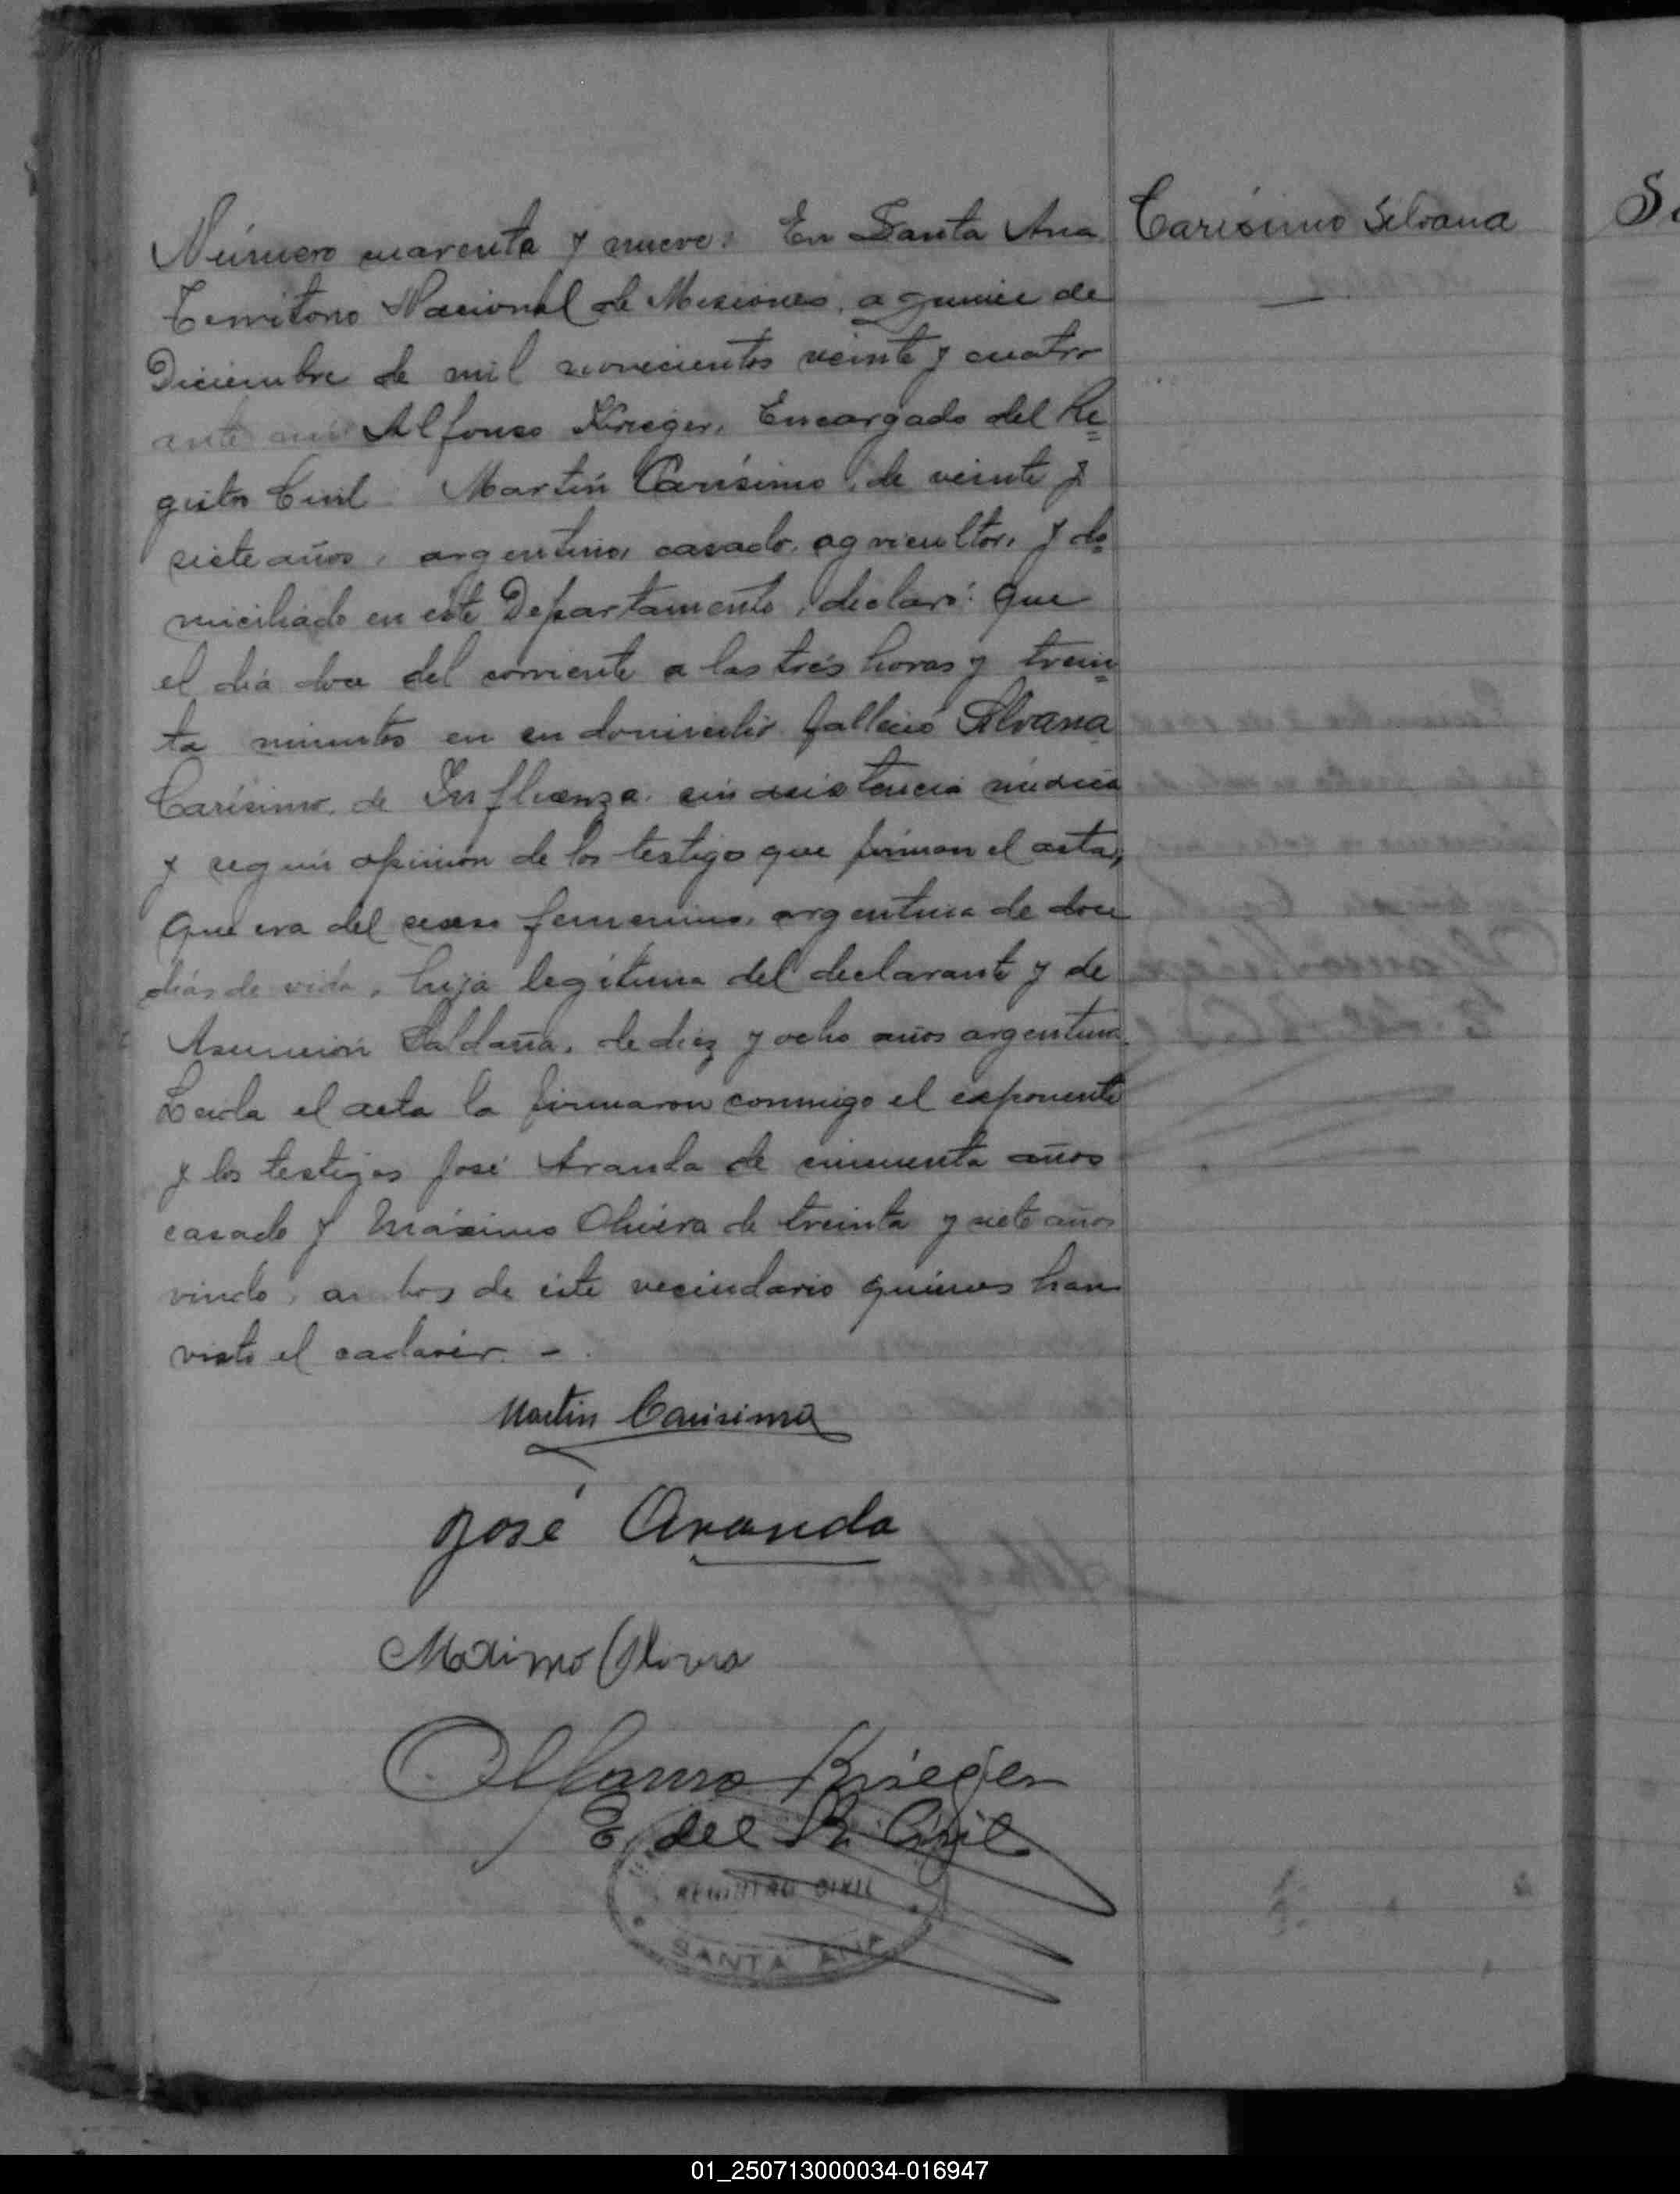 Número cuarenta y nueve: En Santa Ana
Carísimo Silvana
Territorio Nacional de Misiones, a quince de
Diciembre de mil novecientos veinte y cuatro
ante mi Alfonso Krieger, Encargado del Re=
gistro Civil Martín Carísimo, de veinte y
siete años, argentino, casado, agricultor, y do=
miciliado en este Departamento, declaró: Que
el día doce del corriente a las trés horas y trein=
ta minutos en su domicilio falleció Silvana
Carísimo, de Influenza, sin asistencia médica
y según opinion de los testigo que firman el acta,
Que era del sexso femenino, argentina de doce
días de vida, hija legítima del declarante y de
Asunción Saldaña, de diez y ocho años argentina.
Leida el acta la firmaron conmigo el exponente
y los testigos José Aranda de cincuenta años
casado y Máximo Olivera de treinta y siete años
viudo, ambos de este vecindario quienes han
visto el cadaver. -
Martin Carisimo
José Aranda
Maximo Olivera
Alfonso Krieger
E. del R. Civil
REGISTRO CIVIL
SANTA ANA
01_250713000034-016947